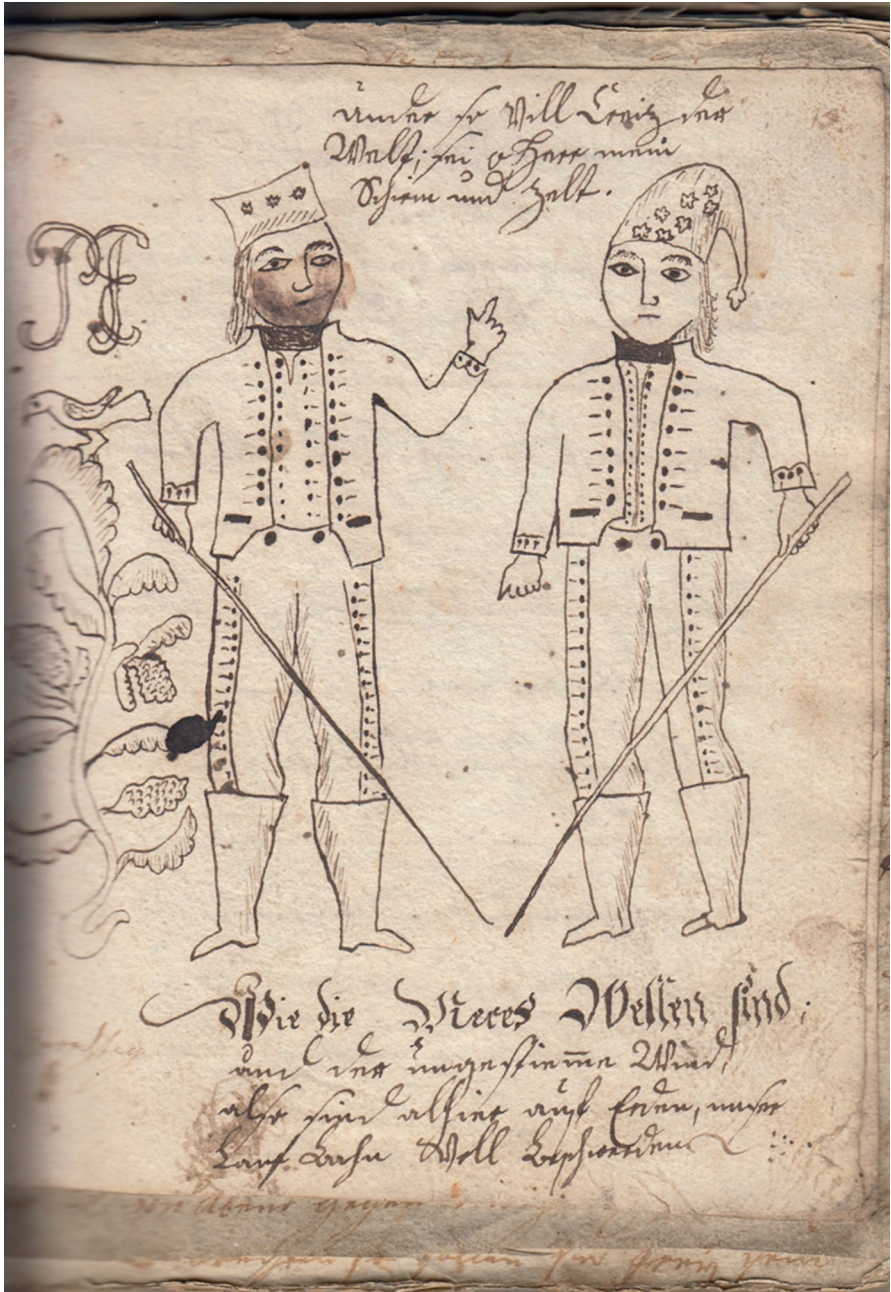 ünder so Vill Creitz der
Welt; sei o Herr mein
Schirm und Zelt.
Wie die Meeres Wellen sind;
und der üngestieme Wind,
also sind alhier auf Erden, unser
Lauf Bahn Voll Beschwerden